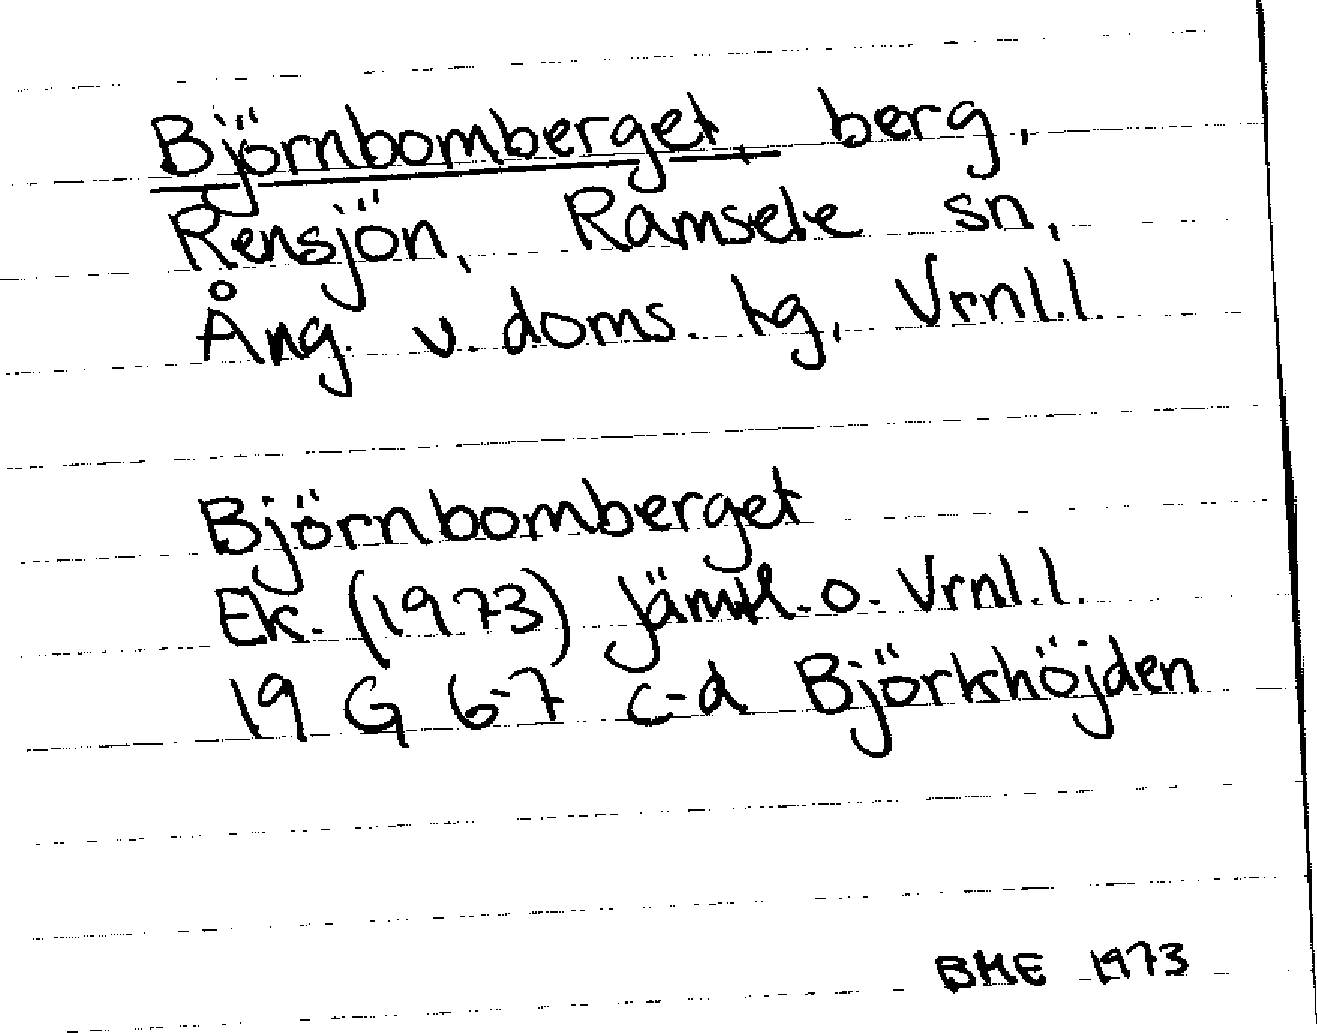 Björnbomberget, berg,
Rensjön, Ramsele sn,
Ång. v. doms. tg, Vrnl.l.
Björnbomberget
Ek. (1973) Jämtl. o. Vrnl.l.
19 G 6-7 c-d Björkhöjden
BME 1973